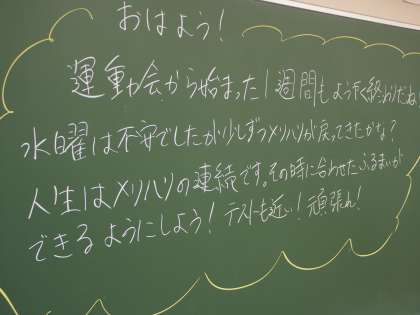 おはよう!
運動会から始まった1週間もようやく終わりだね
水曜は不安でしたが少しずつメリハリが戻ってきたかな?
人生はメリハリの連続です。その時に合わせたふるまいが
できるようにしよう!テストも近い!頑張れ!